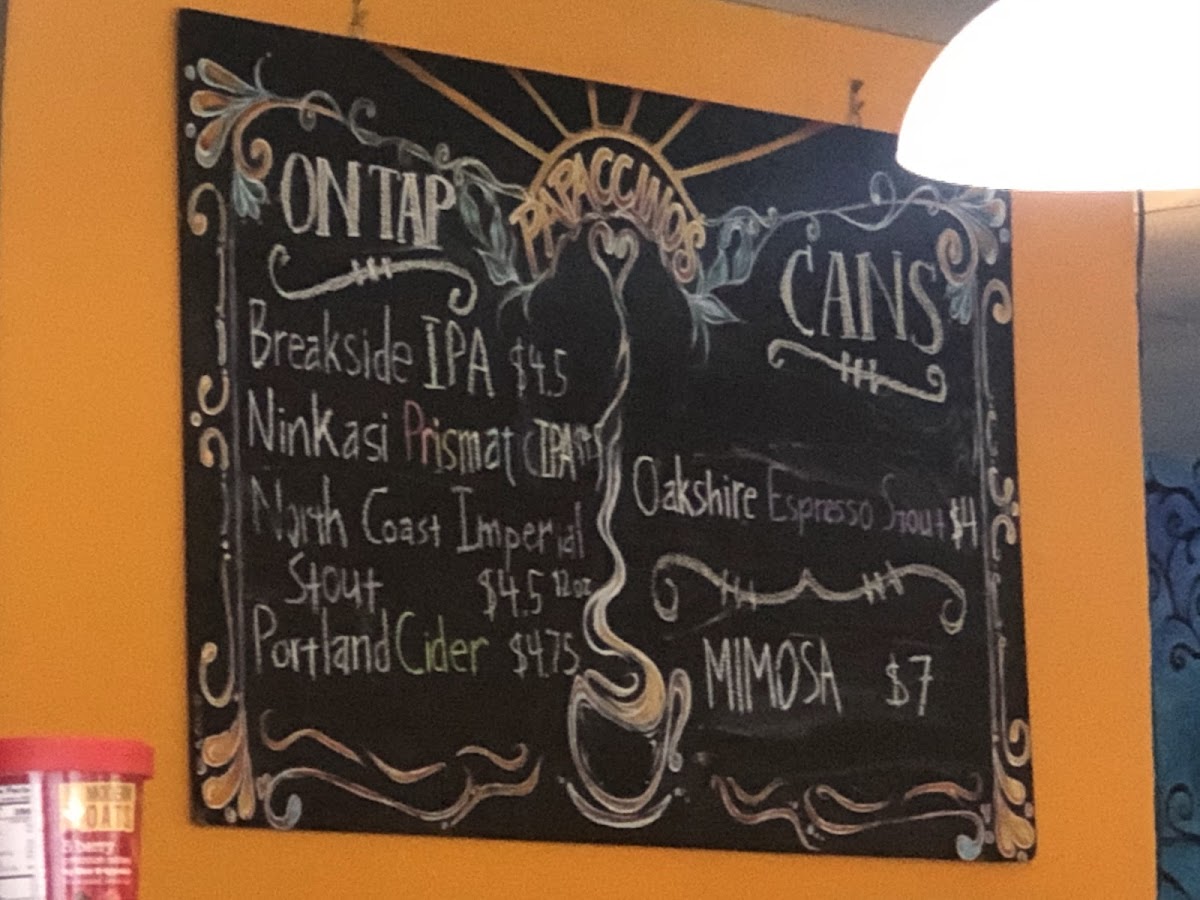 PAPACCINOS
ON TAP
Breakside IPA $4.5
Ninkasi Prismatic IPA
North Coast Imperial
Stout $4.5 12oz
Portland Cider $4.75
CANS
Oakshire Espresso Stout $4
MIMOSA $7
OATS
5 berry